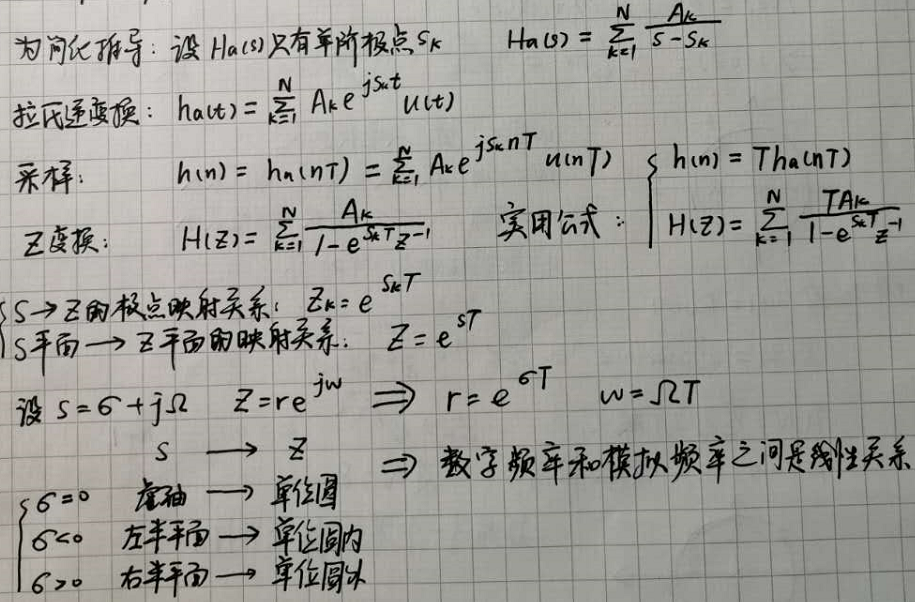 为简化推导：设 Ha(s)只有单阶极点 sₖ    Ha(s) = ∑_{k=1}^{N} Aₖ/(s-sₖ)
拉氏逆变换： ha(t) = ∑_{k=1}^{N} Aₖe^{jsₖt} u(t)
采样： h(n) = ha(nT) = ∑_{k=1}^{N} Aₖe^{jsₖnT} u(nT)    { h(n) = Tha(nT)
Z变换： H(Z) = ∑_{k=1}^{N} Aₖ/(1-e^{sₖT}z^{-1})    实用公式： H(Z) = ∑_{k=1}^{N} TAₖ/(1-e^{sₖT}z^{-1})
S→Z的极点映射关系： Zₖ = e^{sₖT}
S平面→Z平面的映射关系： Z = e^{sT}
设 s = σ + jΩ    Z = re^{jω} ⇒ r = e^{σT}    ω = ΩT
S → Z ⇒ 数字频率和模拟频率之间是线性关系
σ=0 虚轴 → 单位圆
σ<0 左半平面 → 单位圆内
σ>0 右半平面 → 单位圆外